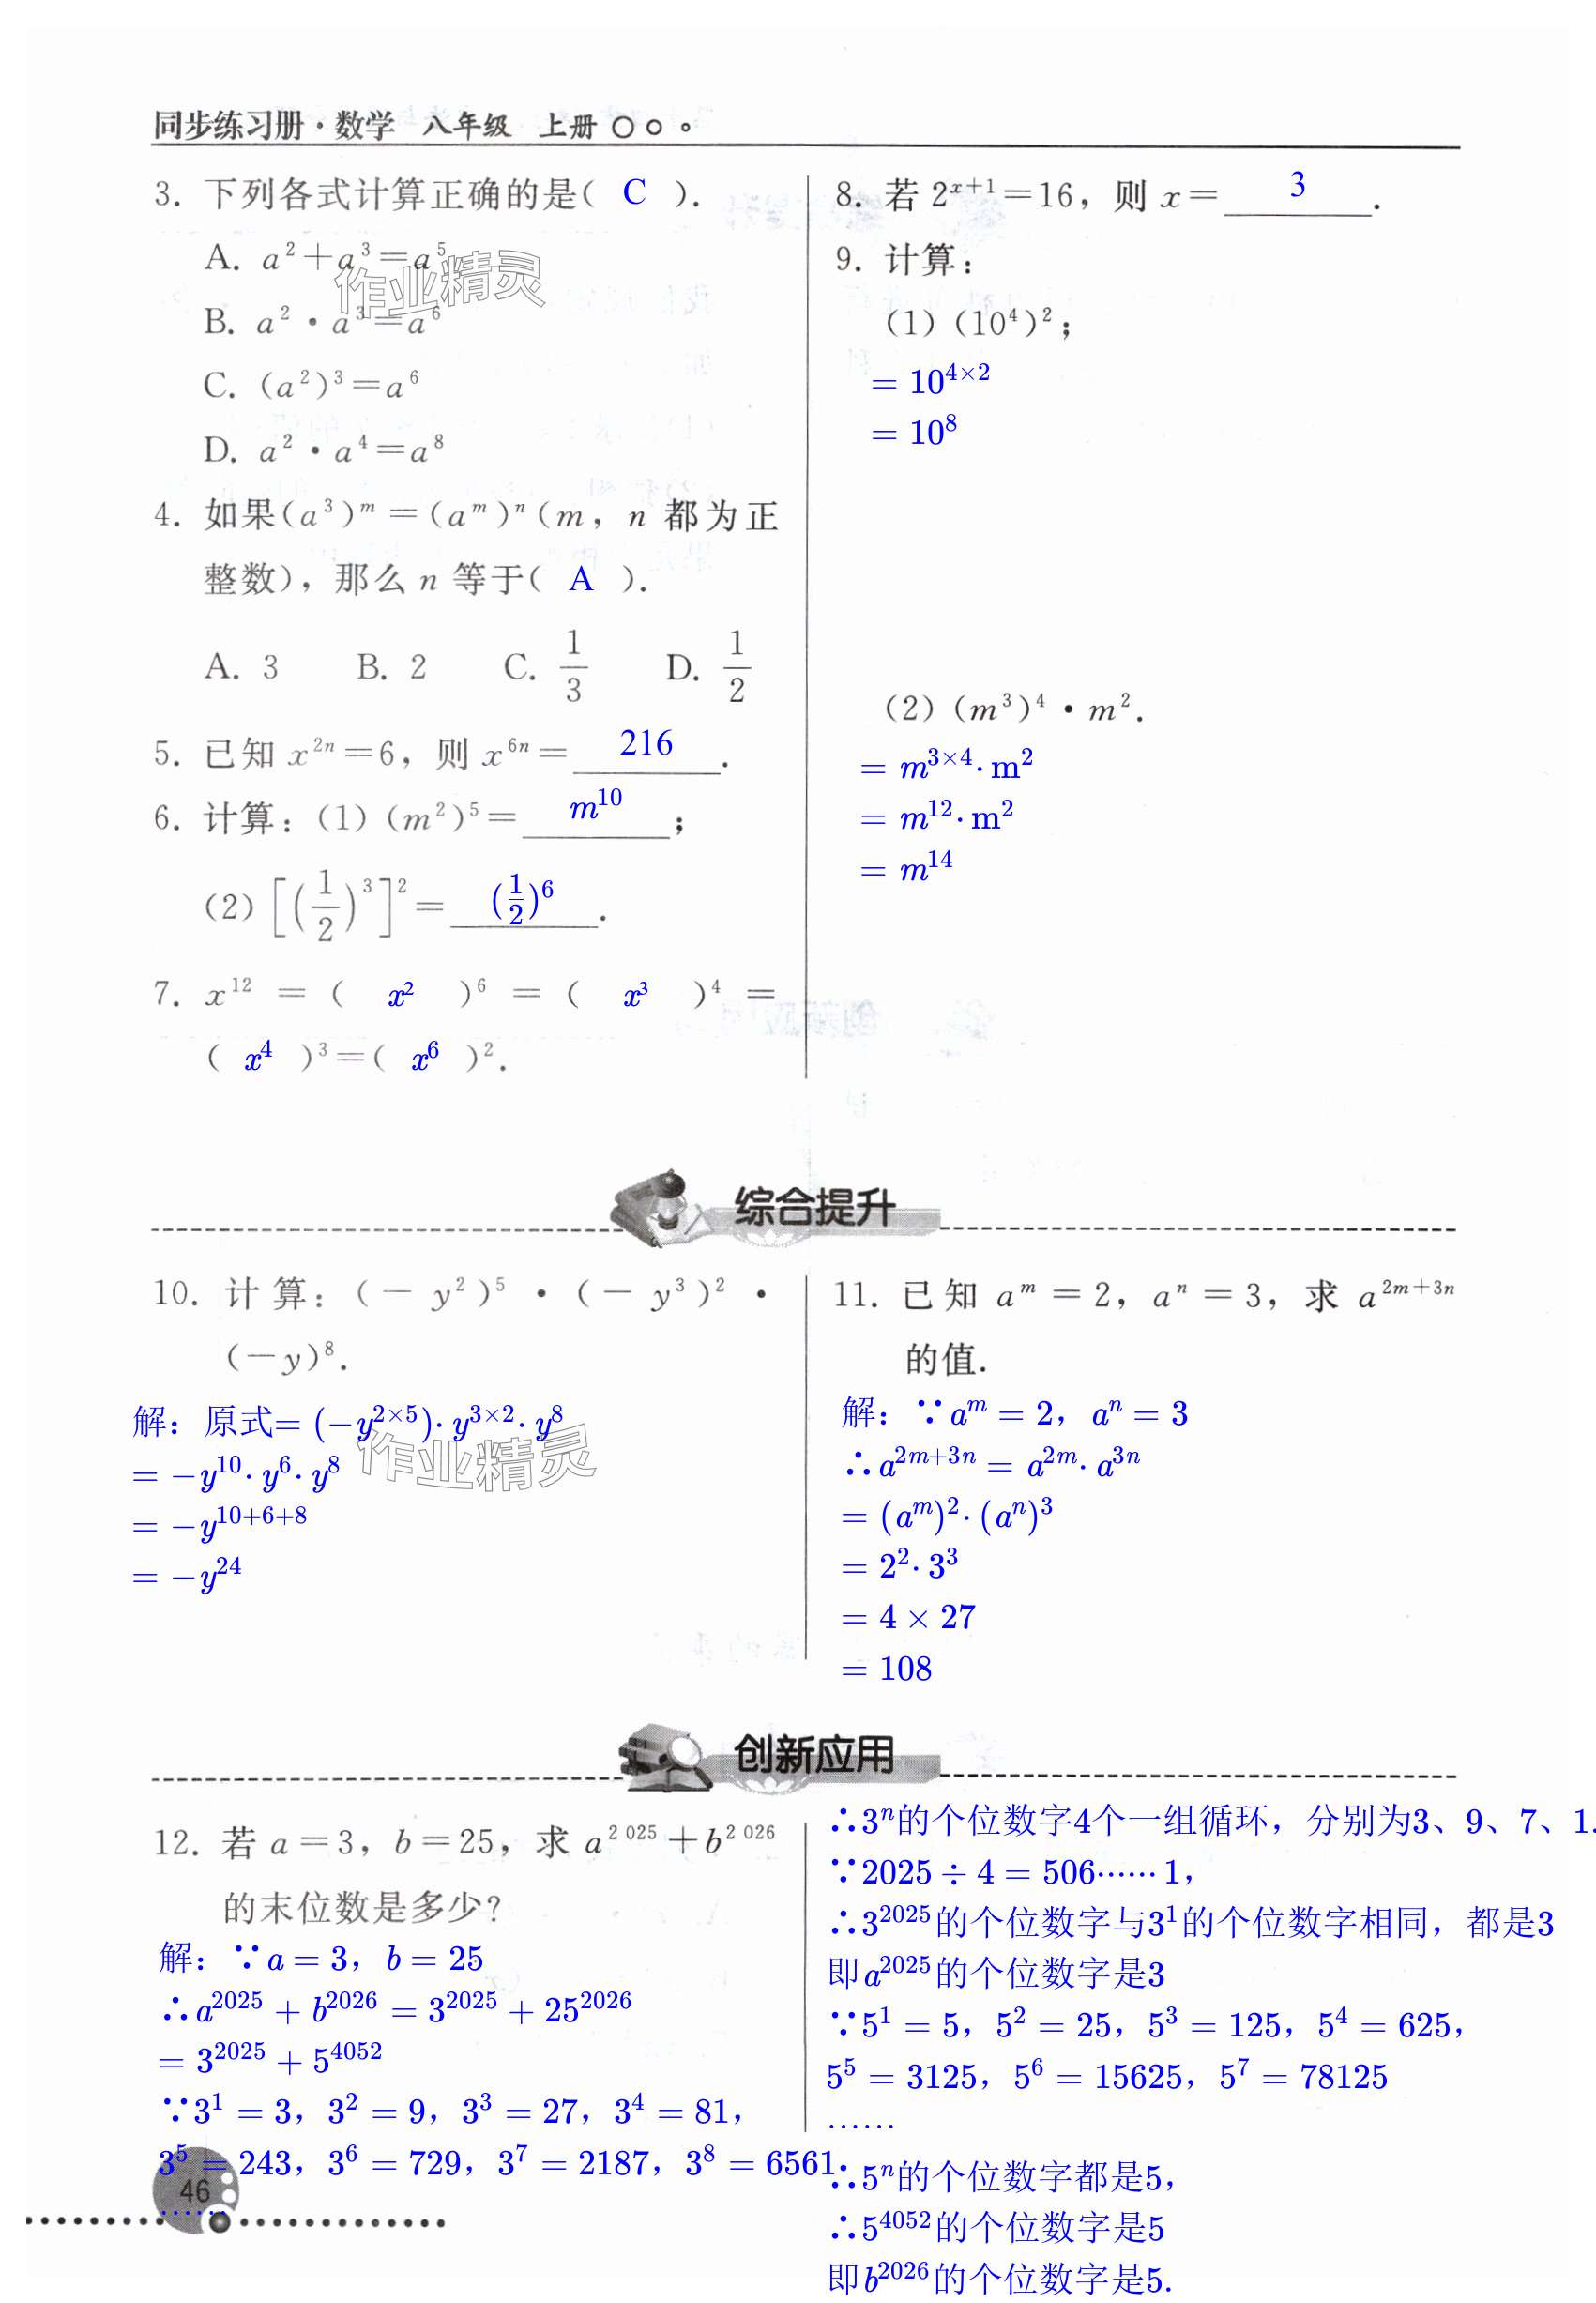 同步练习册·数学 八年级 上册
3. 下列各式计算正确的是( C ).
A. a²+a³=a⁵
B. a²·a³=a⁶
C. (a²)³=a⁶
D. a²·a⁴=a⁸
4. 如果(a³)ᵐ=(aᵐ)ⁿ(m, n 都为正
整数), 那么 n 等于( A ).
A. 3 B. 2 C. 1/3 D. 1/2
5. 已知 x²ⁿ=6, 则 x⁶ⁿ= 216 .
6. 计算: (1) (m²)⁵= m¹⁰ ;
(2) [(1/2)³]²= (1/2)⁶ .
7. x¹² = ( x² )⁶ = ( x³ )⁴ =
( x⁴ )³=( x⁶ )².
8. 若 2ˣ⁺¹=16, 则 x= 3 .
9. 计算:
(1) (10⁴)²;
= 10⁴ˣ²
= 10⁸
(2) (m³)⁴·m².
= m³ˣ⁴·m²
= m¹²·m²
= m¹⁴
作业精灵
综合提升
10. 计算: (-y²)⁵·(-y³)²·
(-y)⁸.
解：原式= (-y²ˣ⁵)·y³ˣ²·y⁸
= -y¹⁰·y⁶·y⁸
= -y¹⁰⁺⁶⁺⁸
= -y²⁴
作业精灵
11. 已知 aᵐ=2, aⁿ=3, 求 a²ᵐ⁺³ⁿ
的值.
解：∵aᵐ = 2，aⁿ = 3
∴a²ᵐ⁺³ⁿ = a²ᵐ·a³ⁿ
= (aᵐ)²·(aⁿ)³
= 2²·3³
= 4 × 27
= 108
创新应用
12. 若 a=3, b=25, 求 a²⁰²⁵+b²⁰²⁶
的末位数是多少?
解：∵a = 3，b = 25
∴a²⁰²⁵ + b²⁰²⁶ = 3²⁰²⁵ + 25²⁰²⁶
= 3²⁰²⁵ + 5⁴⁰⁵²
∵3¹ = 3，3² = 9，3³ = 27，3⁴ = 81，
3⁵ = 243，3⁶ = 729，3⁷ = 2187，3⁸ = 6561
……
∴3ⁿ的个位数字4个一组循环，分别为3、9、7、1.
∵2025 ÷ 4 = 506······1，
∴3²⁰²⁵的个位数字与3¹的个位数字相同，都是3
即a²⁰²⁵的个位数字是3
∵5¹ = 5，5² = 25，5³ = 125，5⁴ = 625，
5⁵ = 3125，5⁶ = 15625，5⁷ = 78125
……
∴5ⁿ的个位数字都是5，
∴5⁴⁰⁵²的个位数字是5
即b²⁰²⁶的个位数字是5.
46